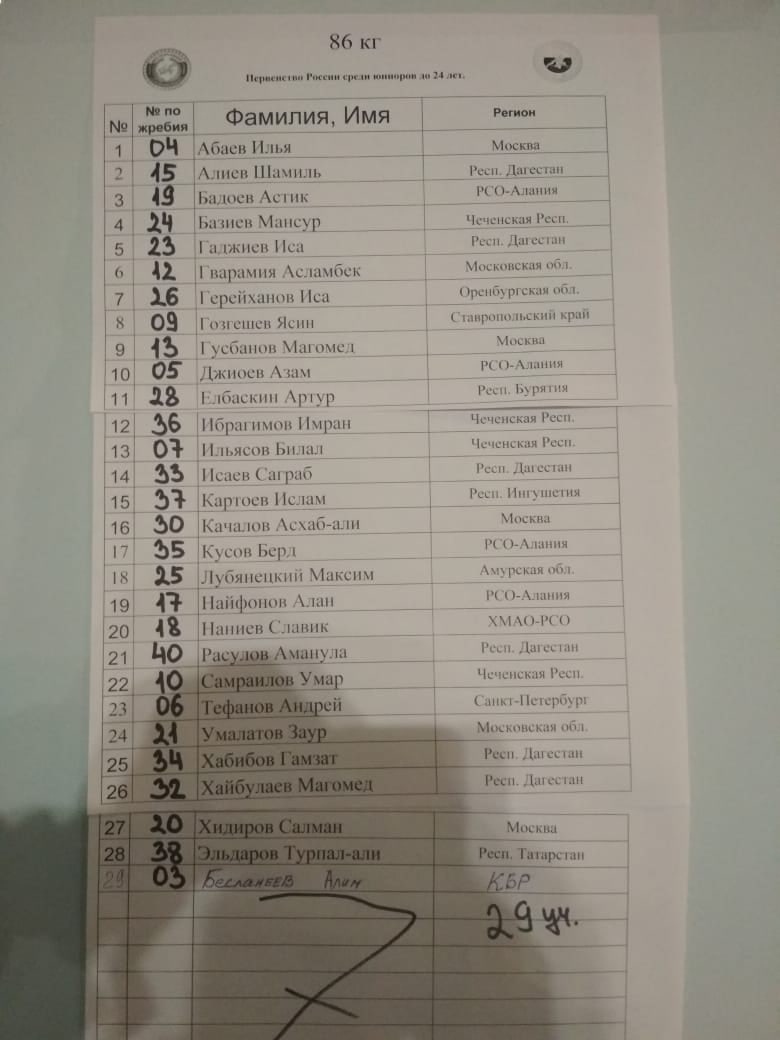 86 кг
Первенство России среди юниоров до 24 лет.
№ № по жребия Фамилия, Имя Регион
1 04 Абаев Илья Москва
2 15 Алиев Шамиль Респ. Дагестан
3 19 Бадоев Астик РСО-Алания
4 24 Базиев Мансур Чеченская Респ.
5 23 Гаджиев Иса Респ. Дагестан
6 12 Гварамия Асламбек Московская обл.
7 26 Герейханов Иса Оренбургская обл.
8 09 Гозгешев Ясин Ставропольский край
9 13 Гусбанов Магомед Москва
10 05 Джиоев Азам РСО-Алания
11 28 Елбаскин Артур Респ. Бурятия
12 36 Ибрагимов Имран Чеченская Респ.
13 07 Ильясов Билал Чеченская Респ.
14 33 Исаев Саграб Респ. Дагестан
15 37 Картоев Ислам Респ. Ингушетия
16 30 Качалов Асхаб-али Москва
17 35 Кусов Берд РСО-Алания
18 25 Лубянецкий Максим Амурская обл.
19 17 Найфонов Алан РСО-Алания
20 18 Наниев Славик ХМАО-РСО
21 40 Расулов Аманула Респ. Дагестан
22 10 Самраилов Умар Чеченская Респ.
23 06 Тефанов Андрей Санкт-Петербург
24 21 Умалатов Заур Московская обл.
25 34 Хабибов Гамзат Респ. Дагестан
26 32 Хайбулаев Магомед Респ. Дагестан
27 20 Хидиров Салман Москва
28 38 Эльдаров Турпал-али Респ. Татарстан
29 03 Бесланеев Алим КБР
29 уч.